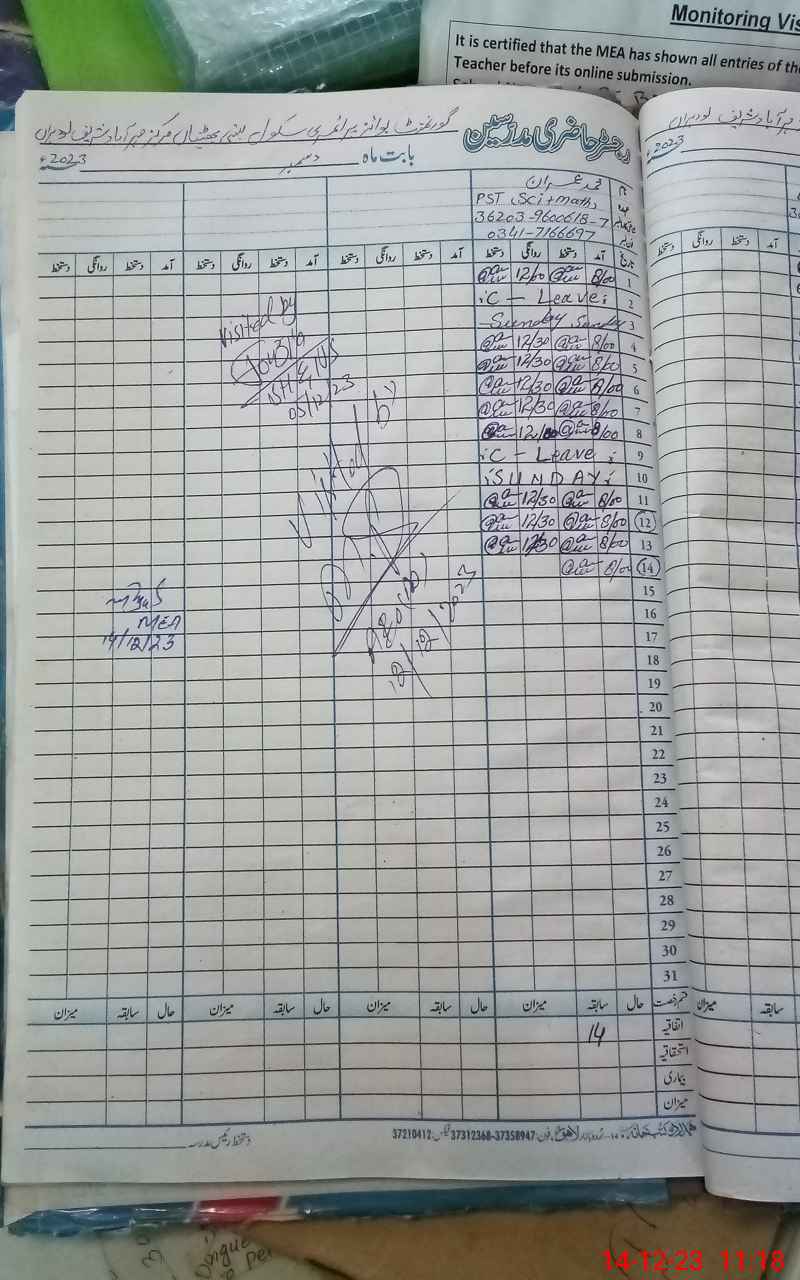 Monitoring Vis
It is certified that the MEA has shown all entries of the
Teacher before its online submission.
رجسٹر حاضری مدرسین
گورنمنٹ بوائز پرائمری سکول
بابت ماہ دسمبر 2023ء
2023ء
نام محمد عمران
PST Sci + math
36203-9600618-7
0341-7166697
تاریخ آمد دستخط روانگی دستخط آمد دستخط روانگی دستخط آمد دستخط روانگی دستخط آمد دستخط روانگی دستخط
آمد روانگی دستخط
1 8/00 12/00
2 C - Leave
3 Sunday Sunday
4 8/00 12/30
5 8/00 12/30
6 8/00 12/30
7 8/00 12/30
8 8/00 12/00
9 C - Leave
10 SUNDAY
11 8/00 12/30
12 8/00 12/30
13 8/00 12/30
14 8/00
15
16
17
18
19
20
21
22
23
24
25
26
27
28
29
30
31
visited by
05/12/23
Visited by
12/12/2023
MEA
14/12/23
قسم رخصت حال سابقہ میزان حال سابقہ میزان حال سابقہ میزان حال سابقہ میزان
سابقہ میزان
اتفاقیہ 14
استحقاقیہ
بیماری
میزان
دستخط رئیس مدرسہ
لاہور فون: 37358947-37312368 فیکس: 37210412
14-12-23 11:18